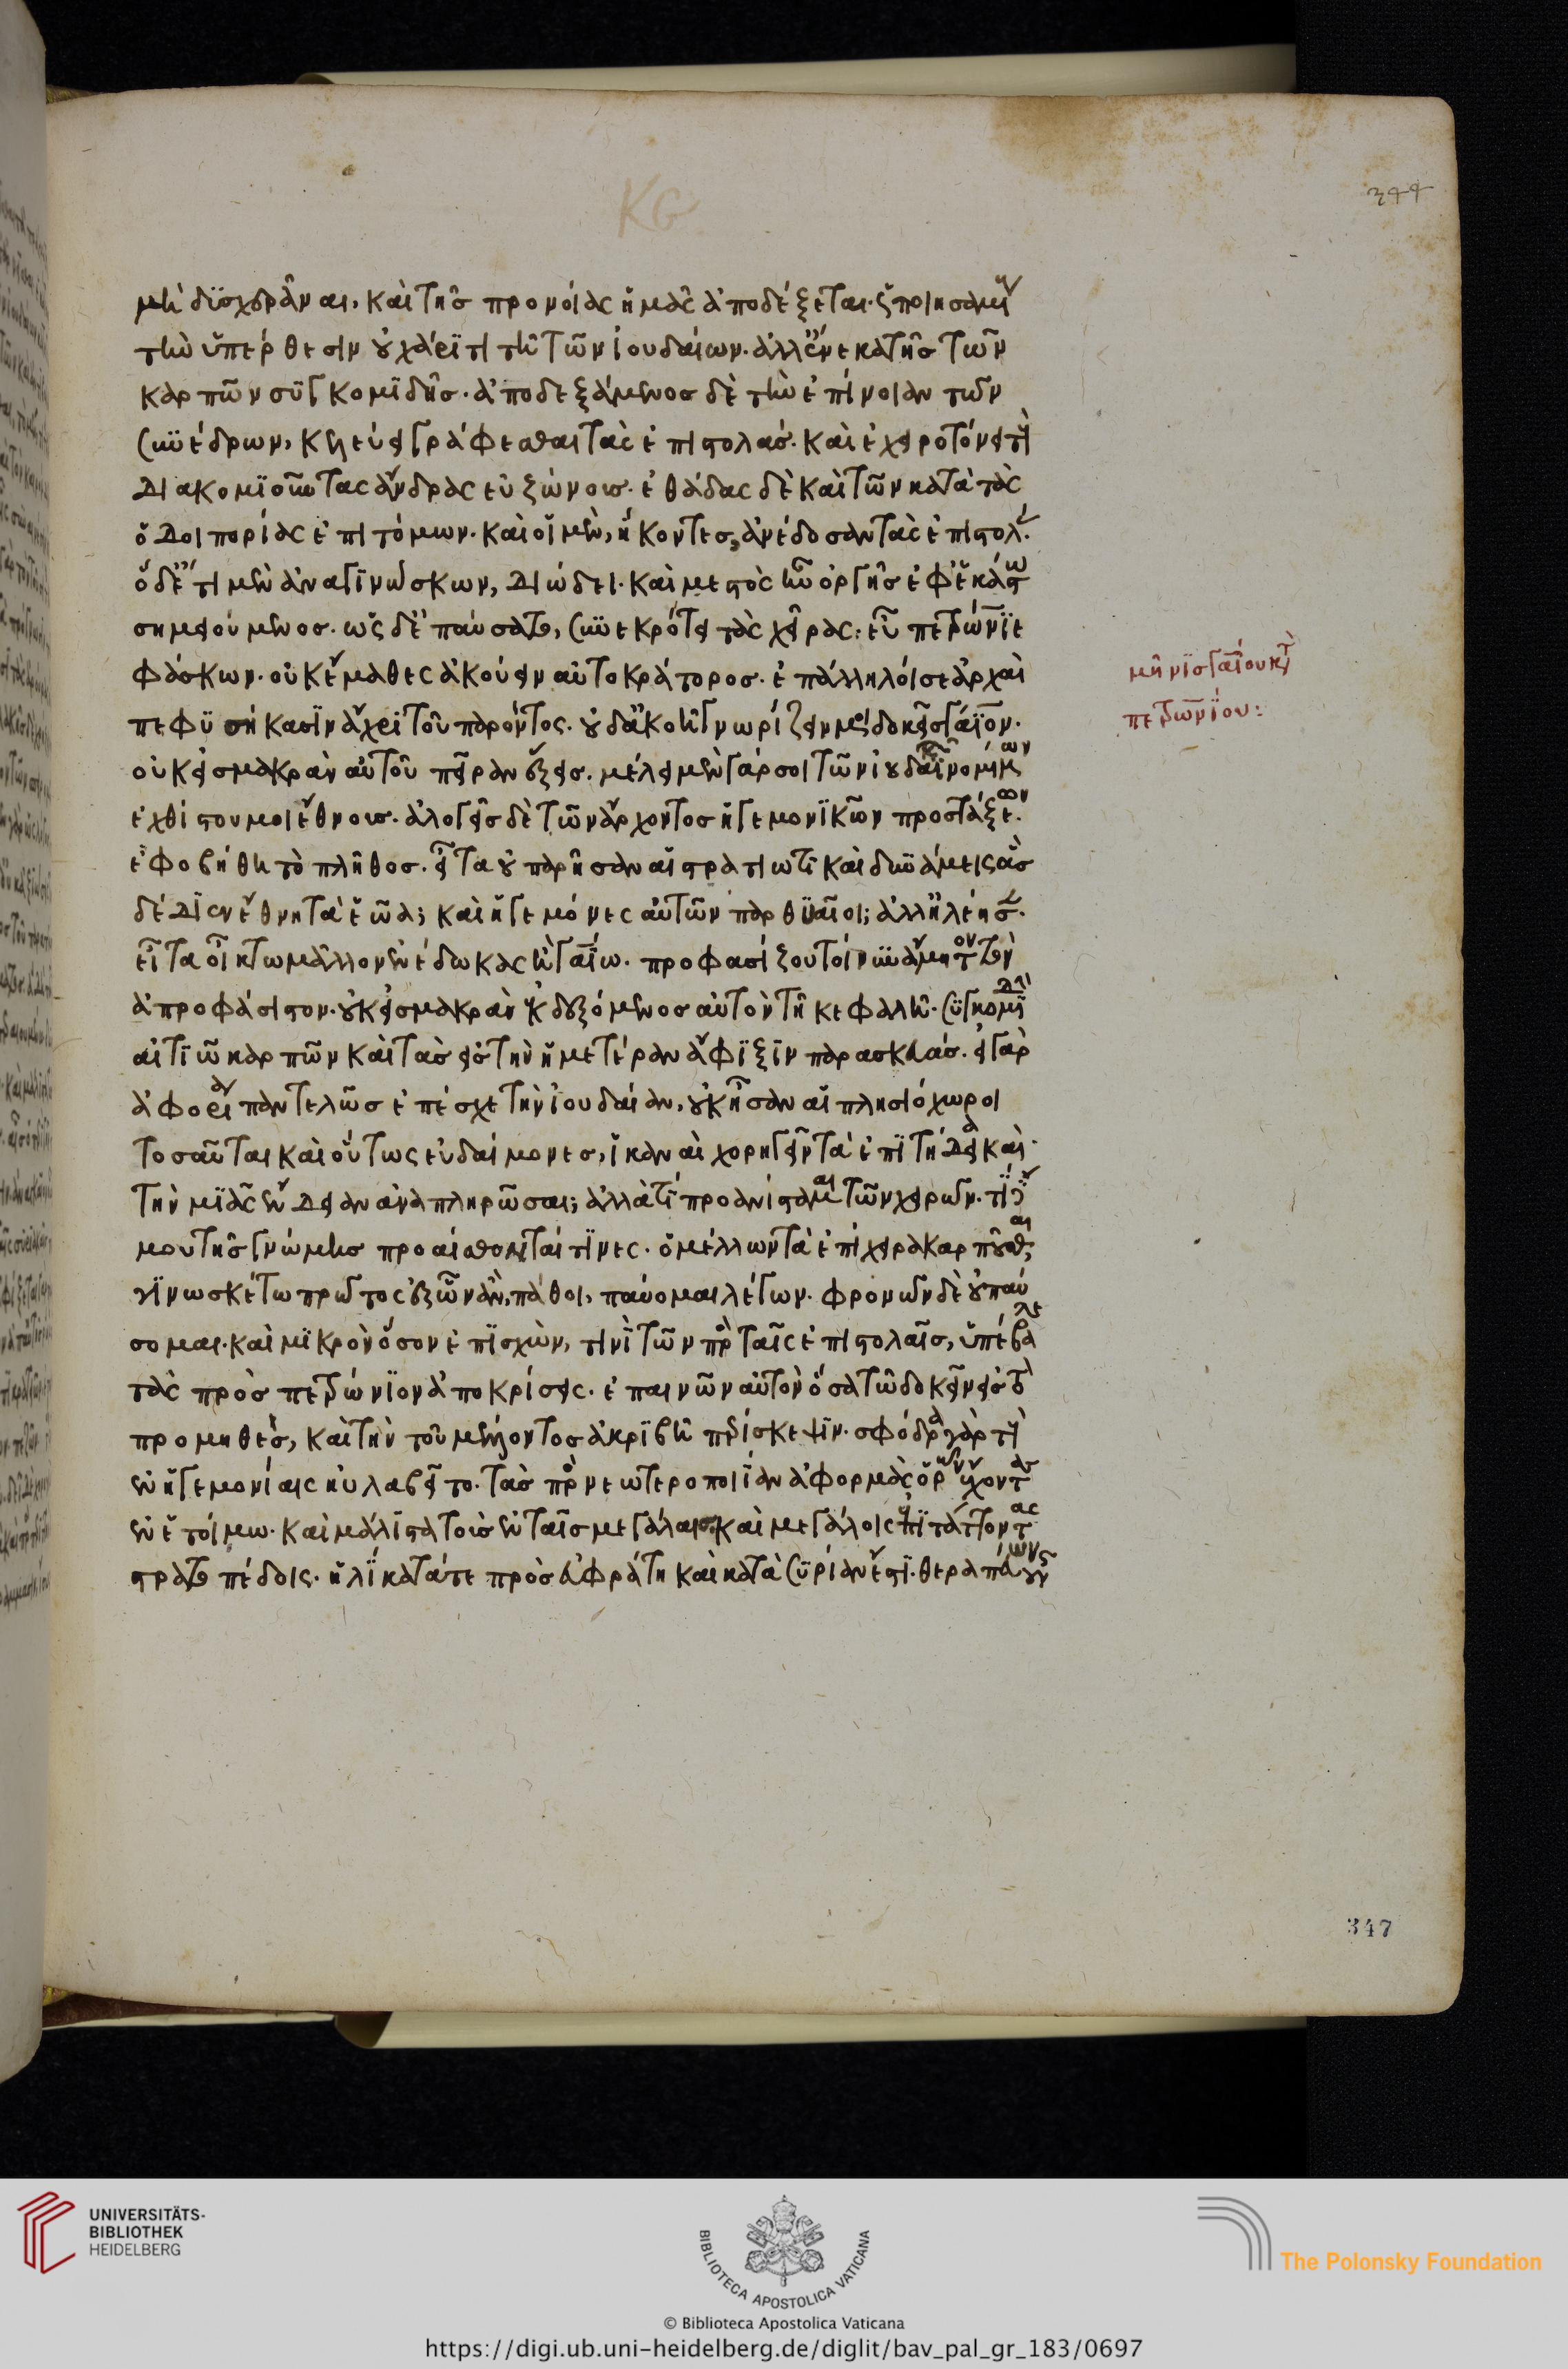 μὴ δϋσχερᾶναι, καὶ τῆς προνοίας ἡμᾶς ἀποδέξεται· ποιησαμέν
τὴν ὑπέρθεσιν οὐ χάριτι τῆ τῶν ἰουδαίων. ἀλλ' ἕνεκα τῆς τῶν
καρπῶν συγκομιδῆς. ἀποδεξάμενος δὲ τὴν ἐπίνοιαν τῶν
συνέδρων, κελεύει γράφεσθαι τὰς ἐπιστολάς. καὶ ἐχειροτόνει τοὺ
διακομιοῦντας ἄνδρας εὐζώνους. ἐθάδας δὲ καὶ τῶν κατὰ τὰς
ὁδοιπορίας ἐπιτόμων. καὶ οἱ μὲν, ἥκοντες, ἀνέδοσαν τὰς ἐπιστολ.
ὁ δ' ἔτι μὲν ἀναγινώσκων, διώδει. καὶ μεστὸς ἦν ὀργῆς ἐφ' ἑκάστω
σημειούμενος. ὡς δ' ἐπαύσατο, συνεκρότει τὰς χεῖρας. εὖ πετρώνιε
φάσκων. οὐκ ἔμαθες ἀκούειν αὐτοκράτορος. ἐπάλληλοί σε ἀρχαὶ
πεφυσήκασιν ἄχρι τοῦ παρόντος. οὐδ' ἀκοῆ γνωρίζειν με δοκεῖς γάϊον.
οὐκ εἰς μακρὰν αὐτοῦ πεῖραν ἕξεις. μέλει μὲν γάρ σοι τῶν ἰουδαϊκῶν νομίμων
ἐχθίστου μοι ἔθνους. ἀλογεῖς δὲ τῶν ἄρχοντος ἡγεμονικῶν προστάξεων.
ἐφοβήθη τὸ πλῆθος. εἶτα οὐ παρῆσαν αἱ στρατιωτικαὶ δυνάμεις ἃς
δέδιεν ἔθνη τὰ ἑῶα; καὶ ἡγεμόνες αὐτῶν παρθυαῖοι; ἀλλ' ἠλέησ.
εἶτα οἴκτω μᾶλλον ἐνέδωκας ἢ γαΐω. προφασίζου τοίνυν ἄμητον τὸν
ἀπροφάσιστον. οὐκ εἰς μακρὰν ἐκδεξόμενος αὐτὸν τῆ κεφαλῆ. συγκομιδὴ
αἰτιῶ καρπῶν καὶ τὰς εἰς τὴν ἡμετέραν ἄφιξιν παρασκευάς. εἰ γὰρ
ἀφορία παντελῶς ἐπέσχε τὴν ἰουδαίαν, οὐκ ἦσαν αἱ πλησιόχωροι
τοσαῦται καὶ οὕτως εὐδαίμονες, ἱκαναὶ χορηγεῖν τὰ ἐπιτήδεια καὶ
τὴν μιᾶς ἔνδειαν ἀναπληρῶσαι; ἀλλὰ τί προανίσταμαι τῶν χειρῶν.
μου τῆς γνώμης προαίσθονταί τινες. ὁ μέλλων τὰ ἐπίχειρα καρποῦσθαι,
γινωσκέτω πρῶτος ἐξ ὧν ἂν πάθοι, παύομαι λέγων. φρονῶν δὲ οὐ παύ
σομαι. καὶ μικρὸν ὅσον ἐπισχὼν, τινὶ τῶν πρὸς ταῖς ἐπιστολαῖς, ὑπέβαλε
τὰς πρὸς πετρώνιον ἀποκρίσεις. ἐπαινῶν αὐτὸν ὅσα τῶ δοκεῖν εἰς τὸ
προμηθὲς, καὶ τὴν τοῦ μέλλοντος ἀκριβῆ περίσκεψιν. σφόδρα γὰρ τοὺ
ἐν ἡγεμονίαις ηὐλαβεῖτο. τὰς πρὸς νεωτεροποιίαν ἀφορμὰς ὁρῶν ἔχοντας
ἐν ἑτοίμω. καὶ μάλιστα τοὺς ἐν ταῖς μεγάλαις καὶ μεγάλοις ἐπιτάττοντας
στρατοπέδοις. ἡλίκα τά τε πρὸς εὐφράτη καὶ κατὰ συρίαν ἐστί. θεραπεύων οὖν
μῆνις γαΐου κατὰ
πετρωνίου:
344
347
UNIVERSITÄTS-
BIBLIOTHEK
HEIDELBERG
BIBLIOTECA APOSTOLICA VATICANA
The Polonsky Foundation
© Biblioteca Apostolica Vaticana
https://digi.ub.uni-heidelberg.de/diglit/bav_pal_gr_183/0697